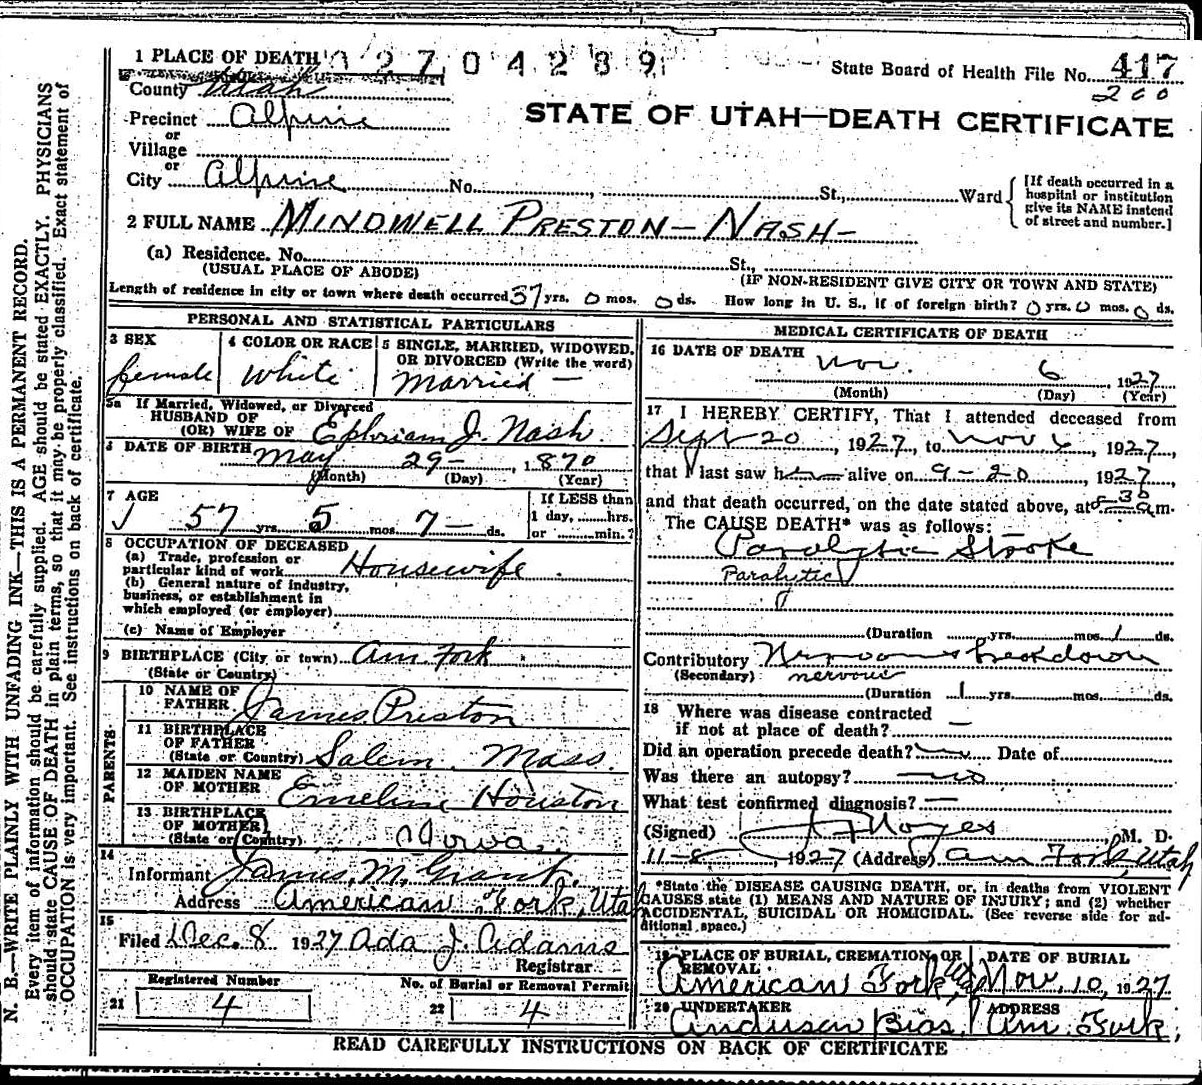 1 PLACE OF DEATH 02704289 State Board of Health File No. 417
County Utah 200
STATE OF UTAH—DEATH CERTIFICATE
Precinct Alpine
or
Village
or
City Alpine No. , St., Ward
[If death occurred in a
hospital or institution
give its NAME instead
of street and number.]
2 FULL NAME MINDWELL PRESTON - NASH -
(a) Residence. No. St.,
(USUAL PLACE OF ABODE) (IF NON-RESIDENT GIVE CITY OR TOWN AND STATE)
Length of residence in city or town where death occurred 37 yrs. 0 mos. 0 ds. How long in U. S., if of foreign birth? 0 yrs. 0 mos. 0 ds.
PERSONAL AND STATISTICAL PARTICULARS
3 SEX
female
4 COLOR OR RACE
White
5 SINGLE, MARRIED, WIDOWED,
OR DIVORCED (Write the word)
Married -
5a If Married, Widowed, or Divorced
HUSBAND OF
(OR) WIFE OF Ephriam J. Nash
6 DATE OF BIRTH May 29 - , 1870
(Month) (Day) (Year)
7 AGE
57 yrs. 5 mos. 7 - ds.
If LESS than
1 day, hrs.
or min.?
8 OCCUPATION OF DECEASED
(a) Trade, profession or
particular kind of work Housewife
(b) General nature of industry,
business, or establishment in
which employed (or employer)
(c) Name of Employer
9 BIRTHPLACE (City or town) Am. Fork
(State or Country)
PARENTS
10 NAME OF
FATHER James Preston
11 BIRTHPLACE
OF FATHER
(State or Country) Salem, Mass.
12 MAIDEN NAME
OF MOTHER Emeline Houston
13 BIRTHPLACE
OF MOTHER
(State or Country) Iowa
14
Informant James M. Grant
Address American Fork, Utah
15
Filed Dec. 8 1927 Ada J. Adams
Registrar
Registered Number
21 4
No. of Burial or Removal Permit
22 4
MEDICAL CERTIFICATE OF DEATH
16 DATE OF DEATH Nov. 6, 1927
(Month) (Day) (Year)
17 I HEREBY CERTIFY, That I attended deceased from
Sept 20, 1927, to Nov 6, 1927,
that I last saw her alive on 9-20, 1927,
and that death occurred, on the date stated above, at 5-30 a m.
The CAUSE DEATH* was as follows:
Paralytic Stroke
Paralytic
(Duration yrs. mos. 1 ds.
Contributory Nervous breakdown
(Secondary) nervous
(Duration 1 yrs. mos. ds.
18 Where was disease contracted
if not at place of death? -
Did an operation precede death? no Date of
Was there an autopsy? no
What test confirmed diagnosis? -
(Signed) Noyes, M. D.
11-8 1927 (Address) Am Fork, Utah
*State the DISEASE CAUSING DEATH, or, in deaths from VIOLENT
CAUSES state (1) MEANS AND NATURE OF INJURY; and (2) whether
ACCIDENTAL, SUICIDAL OR HOMICIDAL. (See reverse side for ad-
ditional space.)
19 PLACE OF BURIAL, CREMATION, OR
REMOVAL
American Fork,
DATE OF BURIAL
Nov. 10, 1927
20 UNDERTAKER
Anderson Bros.
ADDRESS
Am. Fork,
READ CAREFULLY INSTRUCTIONS ON BACK OF CERTIFICATE
N. B.—WRITE PLAINLY WITH UNFADING INK—THIS IS A PERMANENT RECORD.
Every item of information should be carefully supplied. AGE should be stated EXACTLY. PHYSICIANS
should state CAUSE OF DEATH in plain terms, so that it may be properly classified. Exact statement of
OCCUPATION is very important. See instructions on back of certificate.